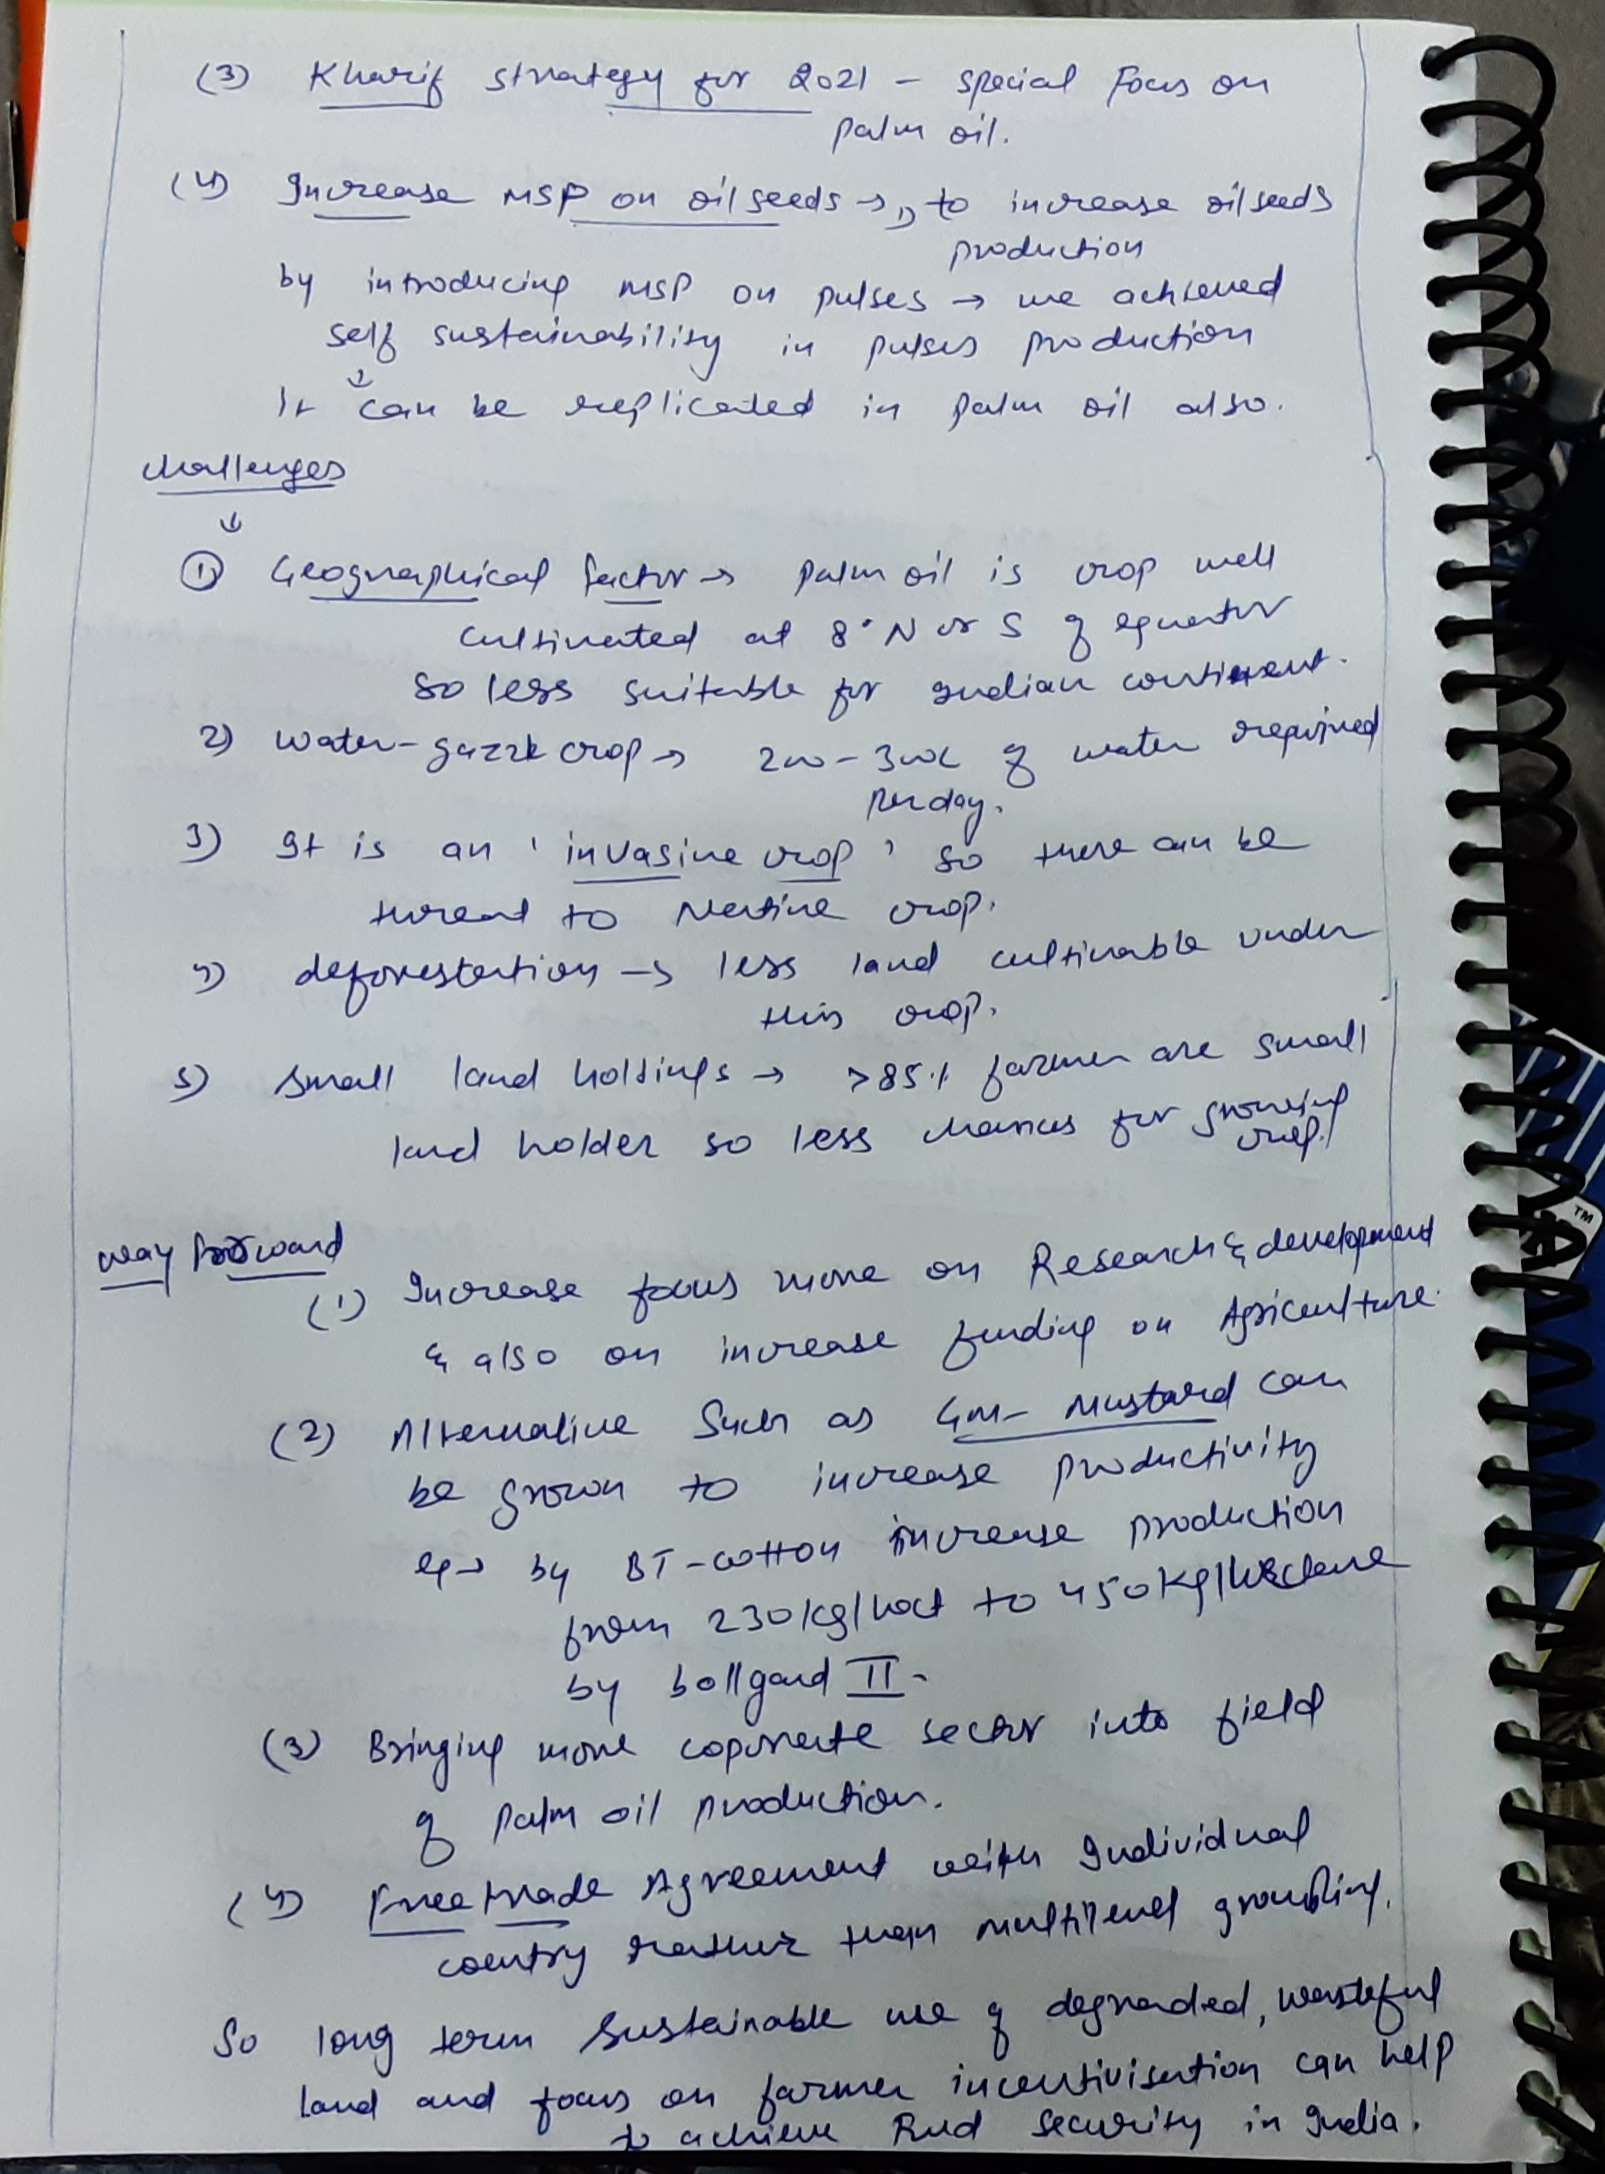 (3) Kharif strategy for 2021 - special Focus on
palm oil.
(4) Increase MSP on oilseeds → to increase oilseeds
production
by introducing MSP on pulses → we achieved
self sustainability in pulses production
↓
It can be replicated in palm oil also.
challenges
↓
① Geographical factor → palm oil is crop well
cultivated at 8° N or S of equator
so less suitable for Indian continent.
2) water-guzzle crop → 200-300L of water required
per day.
3) It is an 'invasive crop' so there can be
threat to Native crop.
4) deforestation → less land cultivable under
this crop.
5) Small land holdings → >85% farmer are small
land holder so less chances for growing
crop.
way forward
(1) Increase focus more on Research & development
& also on increase funding on Agriculture.
(2) Alternative Such as GM- Mustard can
be grown to increase productivity
eg → by BT-cotton increase production
from 230kg/hact to 450kg/hectare
by bollgard II.
(3) Bringing more coporate sector into field
of palm oil production.
(4) Free trade Agreement with Individual
country rather than multilevel groupling.
So long term sustainable use of degraded, wasteful
land and focus on farmer incentivisation can help
to achieve Food security in India.
TM